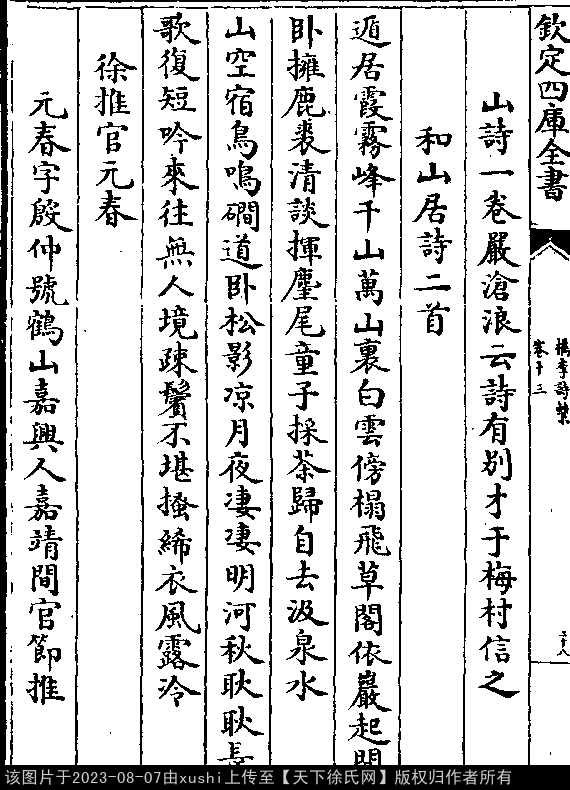 欽定四庫全書
檇李詩繫
卷十三
山詩一卷嚴滄浪云詩有别才于梅村信之
和山居詩二首
遁居霞霧峰千山萬山裏白雲傍榻飛草閣依巖起閒
卧擁鹿裘清談揮麈尾童子採茶歸自去汲泉水
山空宿鳥鳴磵道卧松影凉月夜凄凄明河秋耿耿長
歌復短吟來往無人境疎鬢不堪搔絺衣風露泠
徐推官元春
元春字殷仲號鶴山嘉興人嘉靖間官節推
该图片于2023-08-07由xushi上传至【天下徐氏网】版权归作者所有